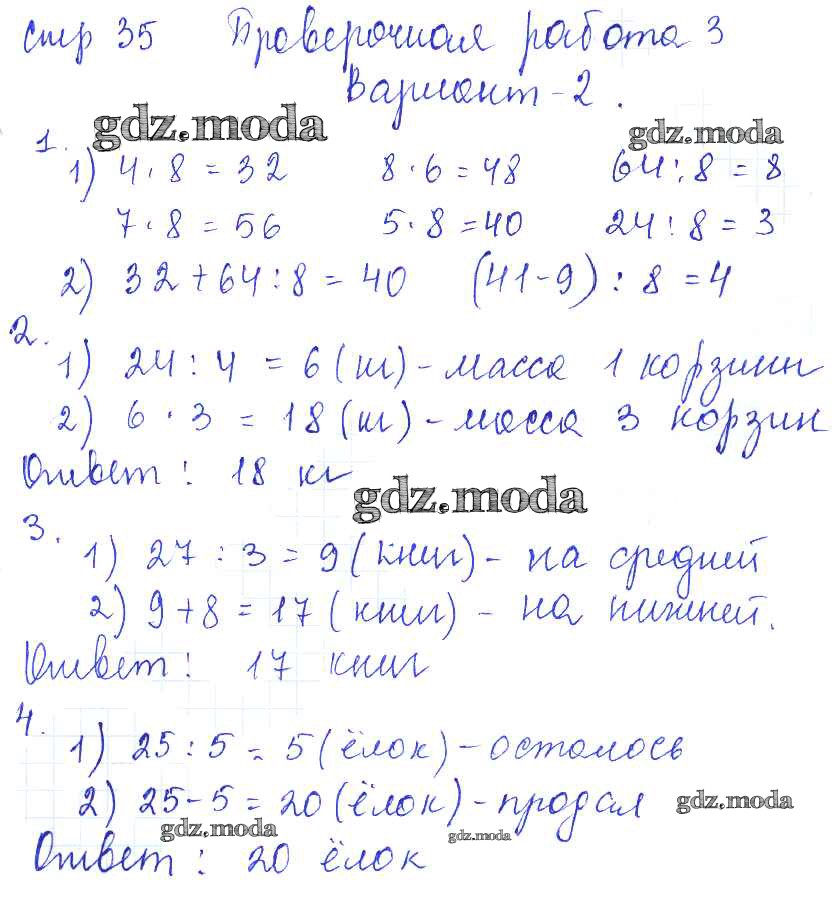 стр 35 Проверочная работа 3
Вариант-2.
gdz.moda gdz.moda
1.
1) 4·8=32 8·6=48 64:8=8
7·8=56 5·8=40 24:8=3
2) 32+64:8=40 (41-9):8=4
2.
1) 24:4=6(кг)-масса 1 корзины
2) 6·3=18(кг)-масса 3 корзин
Ответ: 18 кг
gdz.moda
3.
1) 27:3=9(книг)-на средней
2) 9+8=17(книг)-на нижней.
Ответ: 17 книг
4.
1) 25:5=5(ёлок)-осталось
2) 25-5=20(ёлок)-продал gdz.moda
gdz.moda gdz.moda
Ответ: 20 ёлок